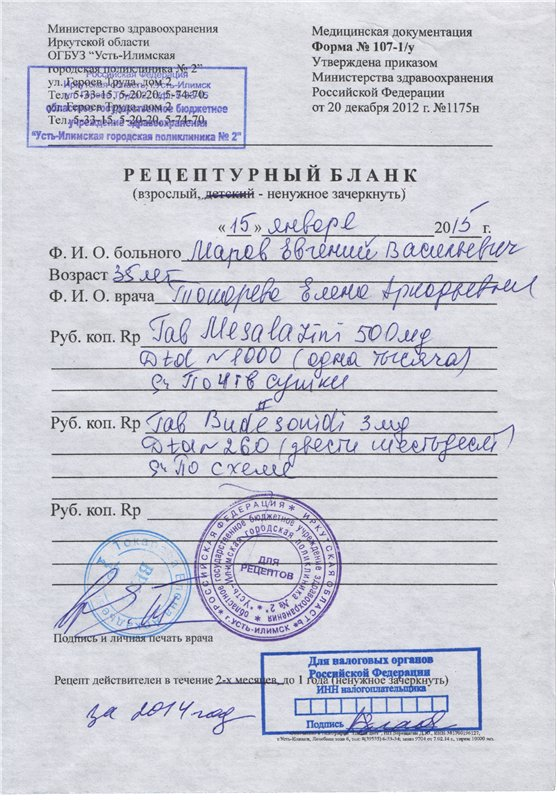 Министерство здравоохранения
Иркутской области
ОГБУЗ “Усть-Илимская
городская поликлиника № 2”
ул. Героев Труда, дом 2
Тел. 5-33-15, 5-20-20, 5-74-70
ул. Героев Труда, дом 2
Тел. 5-33-15, 5-20-20, 5-74-70
Российская Федерация
Иркутская область г. Усть-Илимск
областное государственное бюджетное
учреждение здравоохранения
"Усть-Илимская городская поликлиника № 2"
Медицинская документация
Форма № 107-1/у
Утверждена приказом
Министерства здравоохранения
Российской Федерации
от 20 декабря 2012 г. №1175н
РЕЦЕПТУРНЫЙ БЛАНК
(взрослый, детский - ненужное зачеркнуть)
« 15 » января 2015 г.
Ф. И. О. больного Маров Евгений Васильевич
Возраст 35 лет
Ф. И. О. врача Елена
Руб. коп. Rp Tab Mesalazini 500 мг
Dtd N 1000 (одна тысяча)
По 4т в сутки
Руб. коп. Rp Tab Budesonidi 3 мг
Dtd N 260 (двести шестьдесят)
По схеме
Руб. коп. Rp
РОССИЙСКАЯ ФЕДЕРАЦИЯ * ИРКУТСКАЯ ОБЛАСТЬ * г. УСТЬ-ИЛИМСК
областное государственное бюджетное учреждение здравоохранения
Усть-Илимская городская поликлиника № 2
ДЛЯ
РЕЦЕПТОВ
Подпись и личная печать врача
Рецепт действителен в течение 2-х месяцев, до 1 года (ненужное зачеркнуть)
за 2014 год
Для налоговых органов
Российской Федерации
ИНН налогоплательщика
Подпись